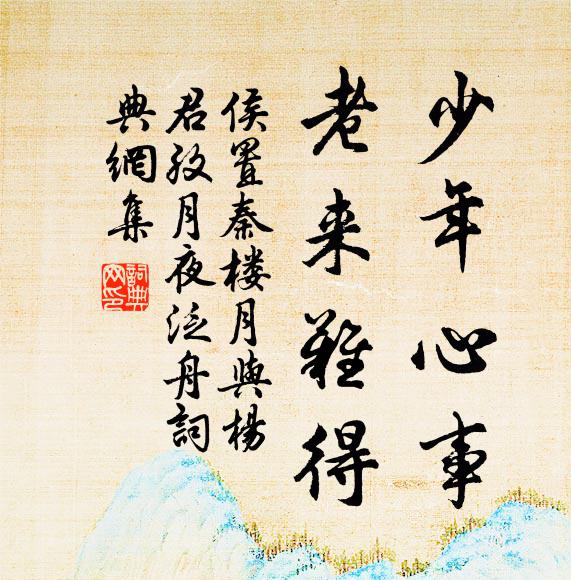 少年心事
老来難得
侯置秦楼月與楊
君孜月夜泛舟詞
典網集
詞典
网印